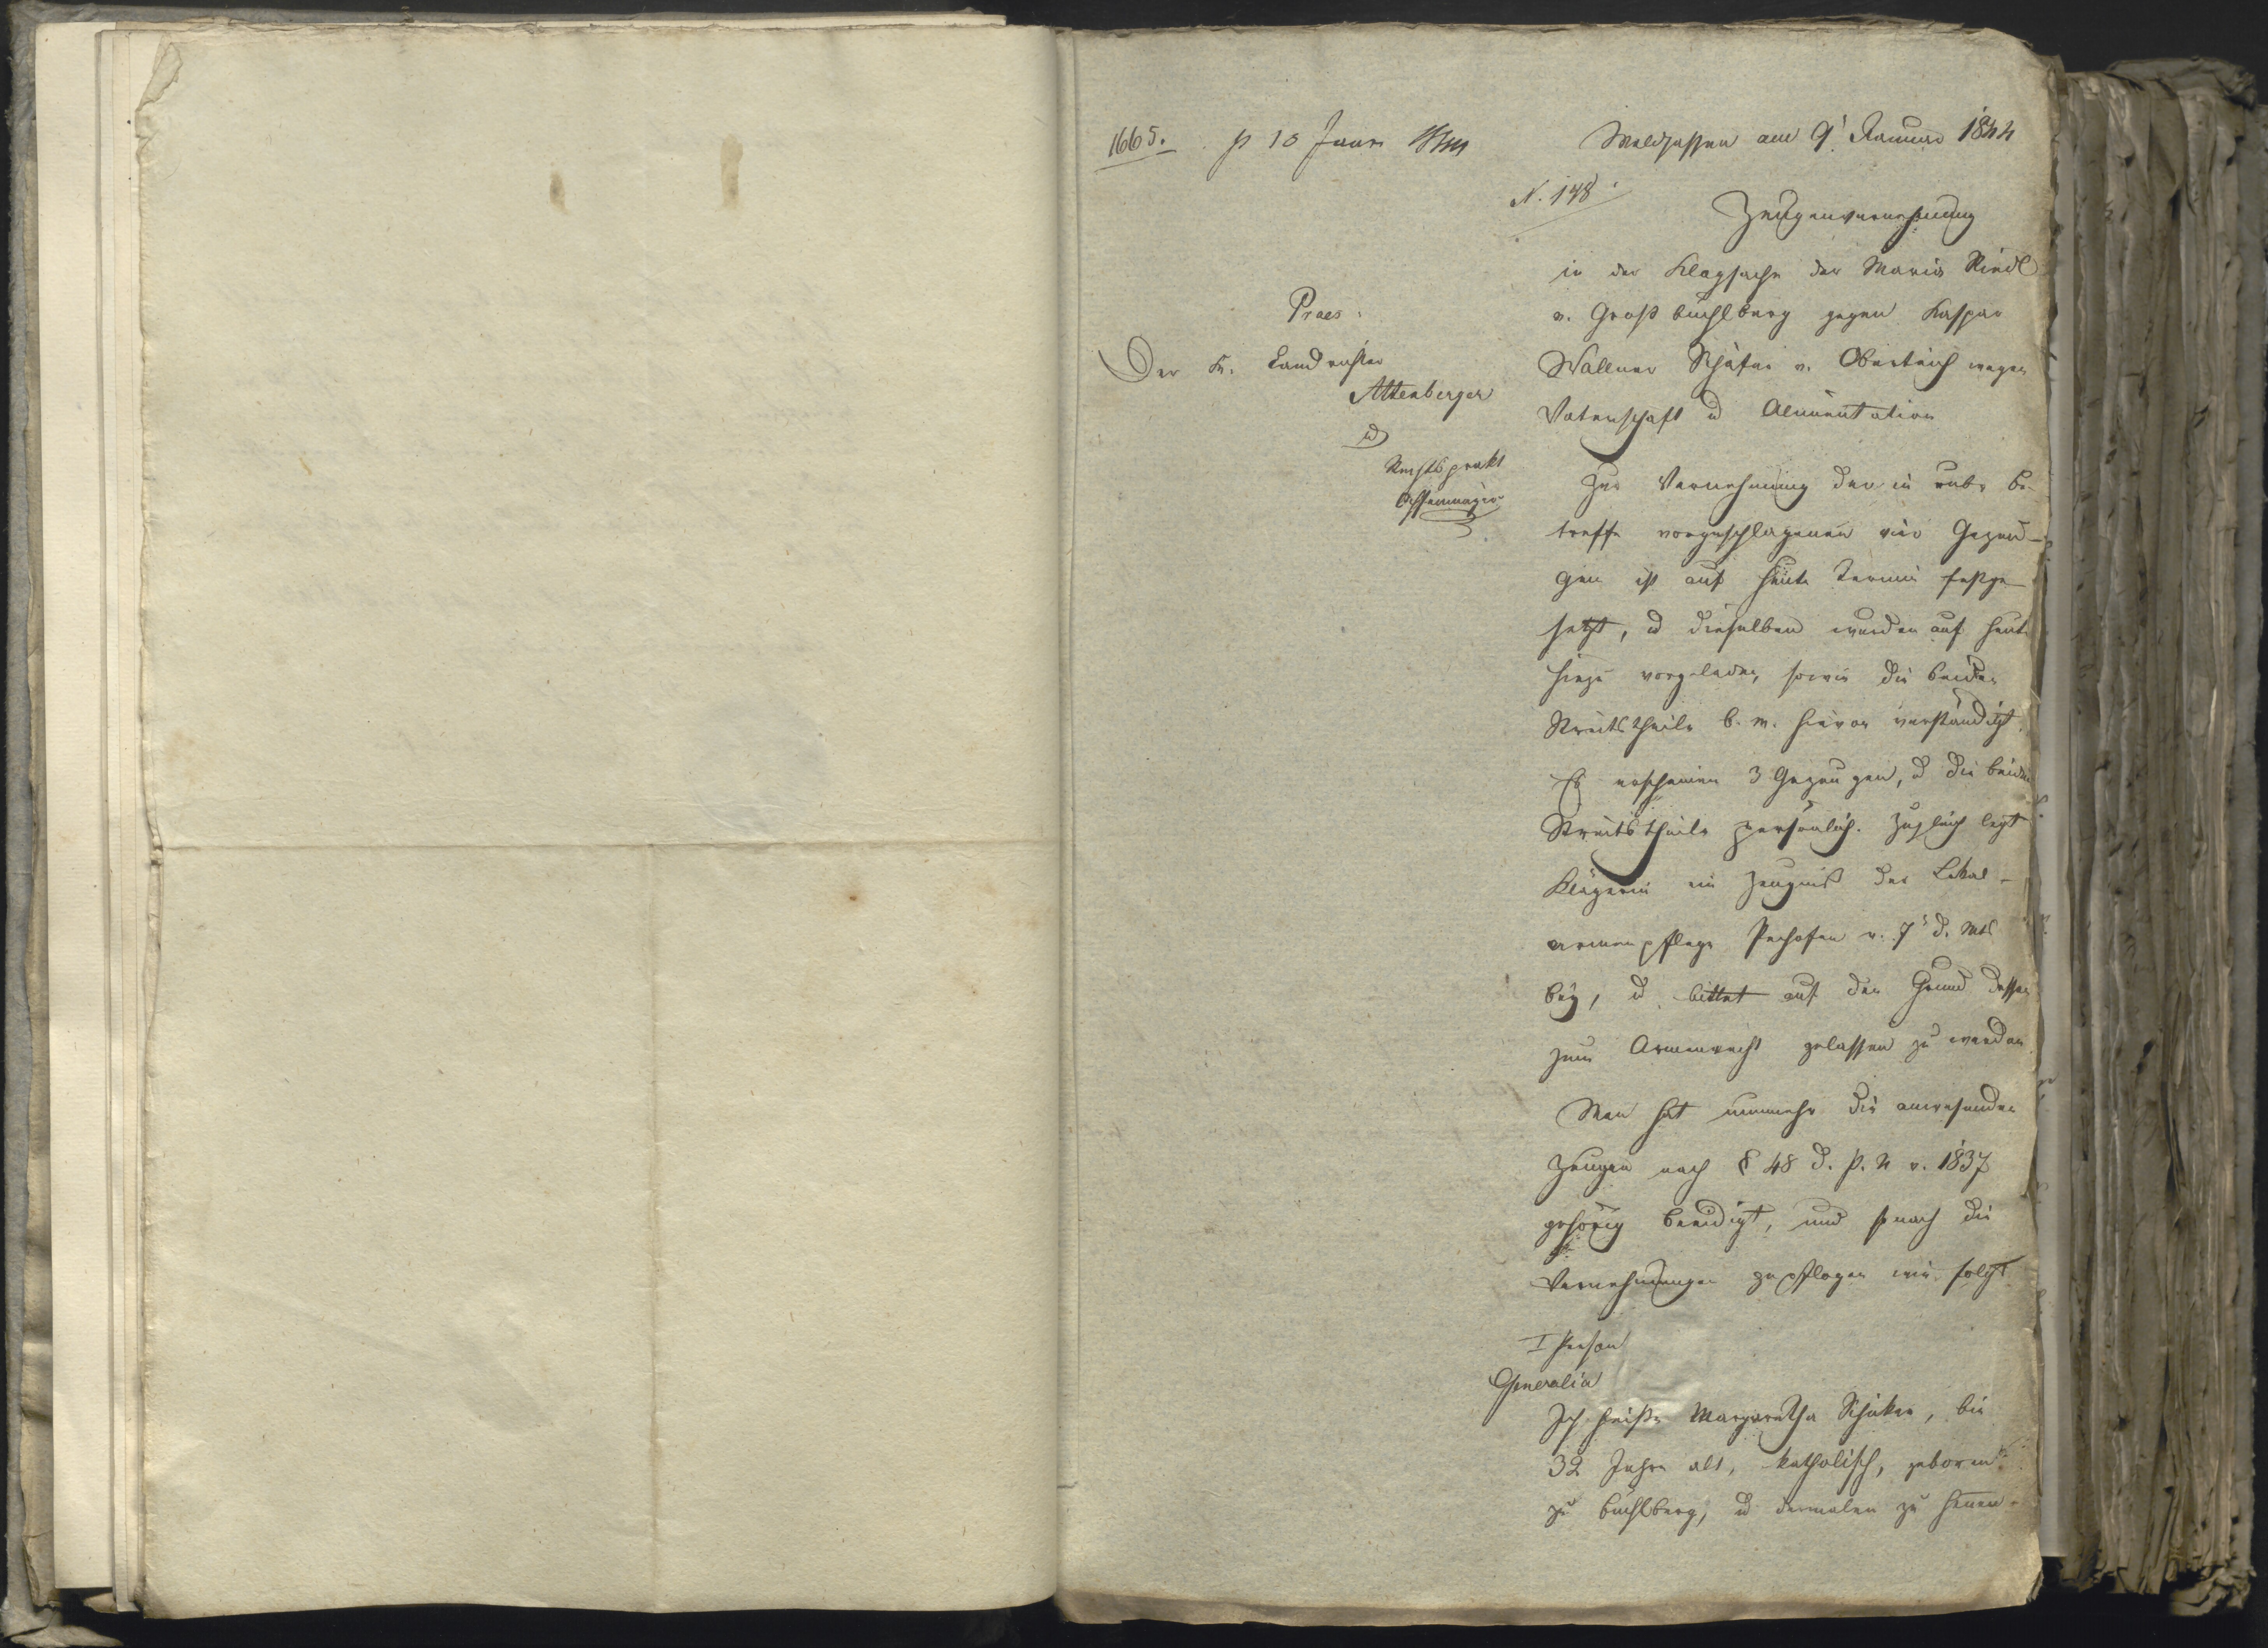 1665. p 10 Janr 1844
Waldsassen am 9t Januar 1844
N. 148
Zeugenvernehmung
in der Klagsache der Maria Riedl
v. Großbüchlberg gegen Kaspar
Wallner Schäfer v. Oberteich wegen
Vaterschaft u Alimentation
Praes:
Der k. Landrichter
Attenberger
u
Rechtsprakt
Zur Vernehmung der in rubr. Be-
treffe vorgeschlagenen vier Gezeu-
gen ist auf heute Termin festge-
setzt, u dieselben wurden auf heute
hiezu vorgeladen, sowie die beiden
Streitstheile b. m. hievon verständigt.
Es erscheinen 3 Gezeugen, u die beiden
Streitstheile persönlich. Zugleich legt
Klägerin ein Zeugniß der Lokal-
armenpflege Pechofen v. 7t d. Mts
bey, u bittet auf den Grund dessen
zum Armenrecht gelassen zu werden
Man hat nunmehr die anwesenden
Zeugen nach § 48 d. P. N v. 1837
gehörig beeidigt, und sonach die
Vernehmungen gepflogen wie folgt
I Person
Generalia
Ich heiße Margaretha Schicker, bin
32 Jahre alt, katholisch, geboren
zu Büchlberg, u dermalen zu